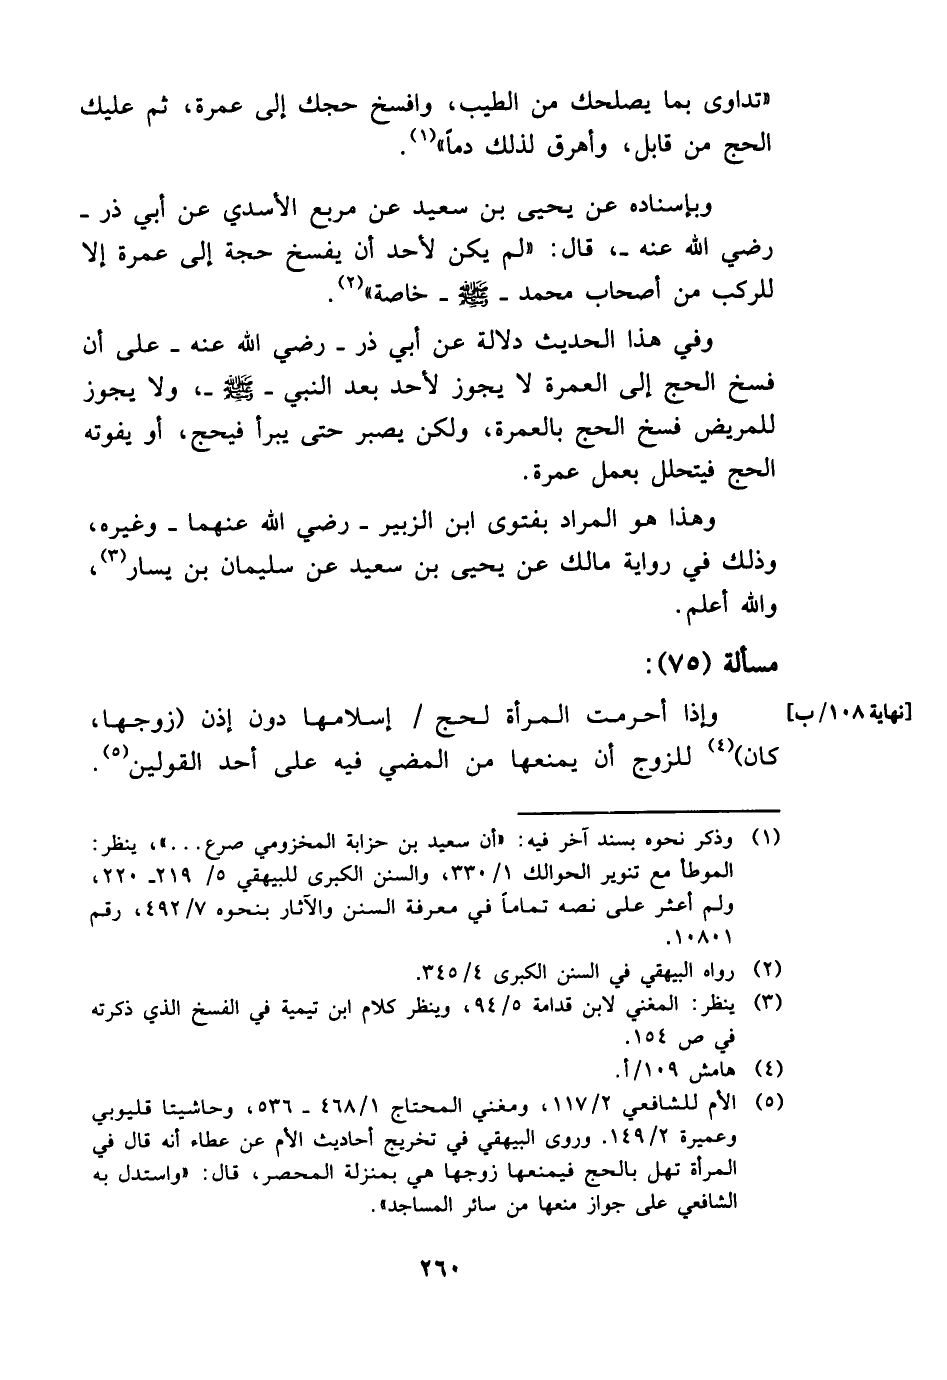 «تداوى بما يصلحك من الطيب، وافسخ حجك إلى عمرة، ثم عليك
الحج من قابل، وأهرق لذلك دماً»(١).
وبإسناده عن يحيى بن سعيد عن مربع الأسدي عن أبي ذر ـ
رضي الله عنه ـ، قال: «لم يكن لأحد أن يفسخ حجة إلى عمرة إلا
للركب من أصحاب محمد ـ ﷺ ـ خاصة»(٢).
وفي هذا الحديث دلالة عن أبي ذر ـ رضي الله عنه ـ على أن
فسخ الحج إلى العمرة لا يجوز لأحد بعد النبي ـ ﷺ ـ، ولا يجوز
للمريض فسخ الحج بالعمرة، ولكن يصبر حتى يبرأ فيحج، أو يفوته
الحج فيتحلل بعمل عمرة.
وهذا هو المراد بفتوى ابن الزبير ـ رضي الله عنهما ـ وغيره،
وذلك في رواية مالك عن يحيى بن سعيد عن سليمان بن يسار(٣)،
والله أعلم.
مسألة (٧٥):
[نهاية ١٠٨/ب] وإذا أحرمت المرأة لحج / إسلامها دون إذن (زوجها،
كان)(٤) للزوج أن يمنعها من المضي فيه على أحد القولين(٥).
(١) وذكر نحوه بسند آخر فيه: «أن سعيد بن حزابة المخزومي صرع...»، ينظر:
الموطأ مع تنوير الحوالك ٣٣٠/١، والسنن الكبرى للبيهقي ٥/ ٢١٩ـ ٢٢٠،
ولم أعثر على نصه تماماً في معرفة السنن والآثار بنحوه ٤٩٢/٧، رقم
١٠٨٠١.
(٢) رواه البيهقي في السنن الكبرى ٣٤٥/٤.
(٣) ينظر: المغني لابن قدامة ٩٤/٥، وينظر كلام ابن تيمية في الفسخ الذي ذكرته
في ص ١٥٤.
(٤) هامش ١٠٩/أ.
(٥) الأم للشافعي ١١٧/٢، ومغني المحتاج ٤٦٨/١ ـ ٥٣٦، وحاشيتا قليوبي
وعميرة ١٤٩/٢. وروى البيهقي في تخريج أحاديث الأم عن عطاء أنه قال في
المرأة تهل بالحج فيمنعها زوجها هي بمنزلة المحصر، قال: «واستدل به
الشافعي على جواز منعها من سائر المساجد».
٢٦٠